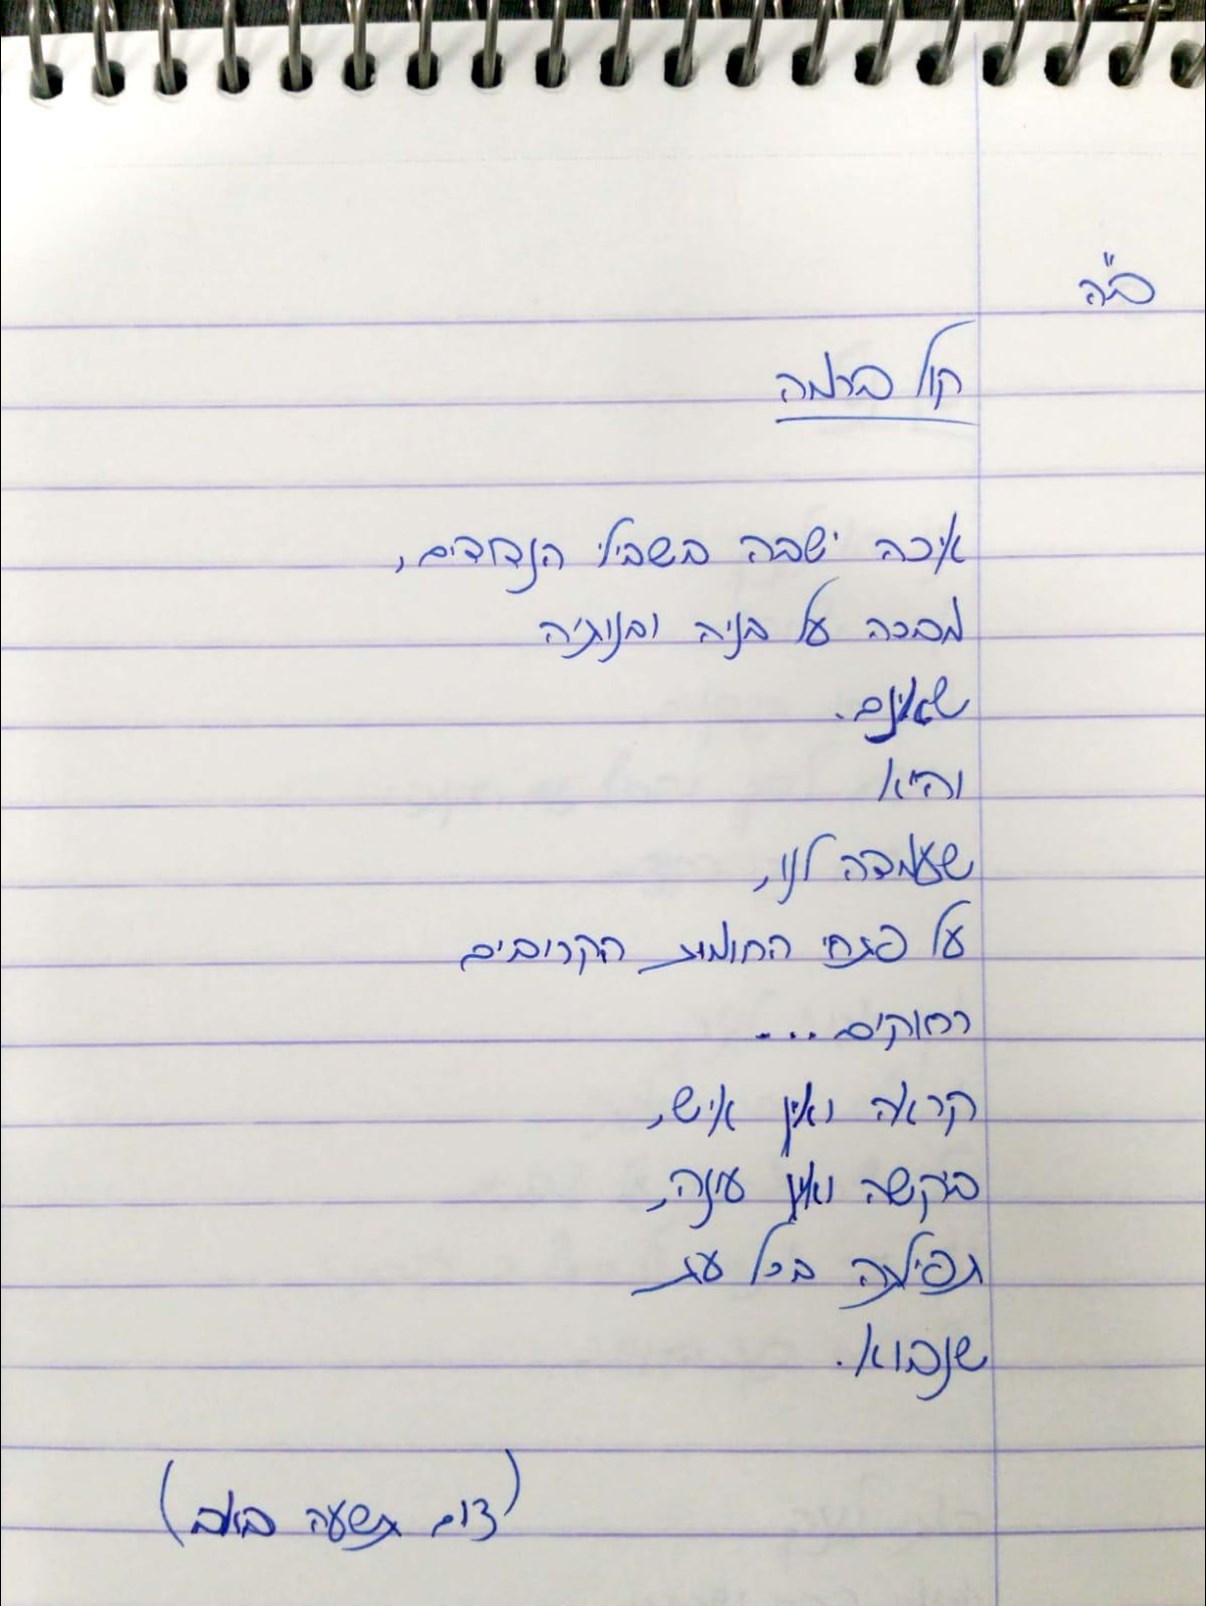 ב"ה
קול ברמה
איכה ישבה בשבילי הנדודים,
מבכה על בניה ובנותיה
שאינם.
והיא
שעמדה לנו,
על פתחי החומות הקרובים
רחוקים...
קראה ואין איש,
ביקשה ואין עונה,
תפילתה בכל עת
שנבוא.
(צום תשעה באב)